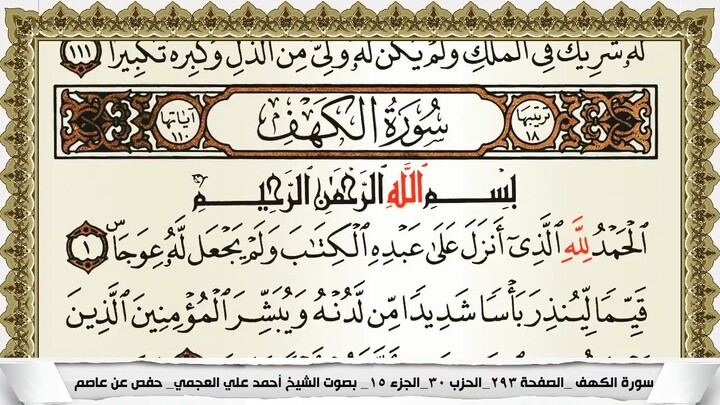 لَّهُۥ شَرِيكٌ فِى ٱلْمُلْكِ وَلَمْ يَكُن لَّهُۥ وَلِىٌّ مِّنَ ٱلذُّلِّ وَكَبِّرْهُ تَكْبِيرًا ١١١
ترتيبها ١٨ سُورَةُ الكَهْفِ آياتها ١١٠
بِسْمِ ٱللَّهِ ٱلرَّحْمَٰنِ ٱلرَّحِيمِ
ٱلْحَمْدُ لِلَّهِ ٱلَّذِىٓ أَنزَلَ عَلَىٰ عَبْدِهِ ٱلْكِتَٰبَ وَلَمْ يَجْعَل لَّهُۥ عِوَجَاۜ ١
قَيِّمًا لِّيُنذِرَ بَأْسًا شَدِيدًا مِّن لَّدُنْهُ وَيُبَشِّرَ ٱلْمُؤْمِنِينَ ٱلَّذِينَ
سورة الكهف _الصفحة ٢٩٣_الحزب ٣٠_الجزء ١٥_ بصوت الشيخ أحمد علي العجمي_ حفص عن عاصم